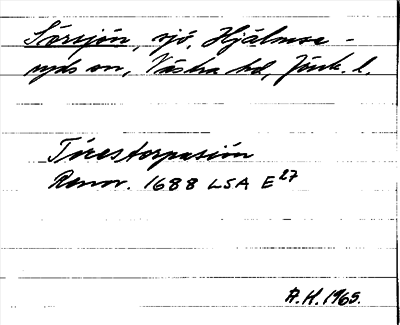 Sörsjön, sjö, Hjälmse-
ryds sn, Västra hd, Jönk. l.
Torestorpasiön
Renov. 1688 LSA E27
A.H. 1965.